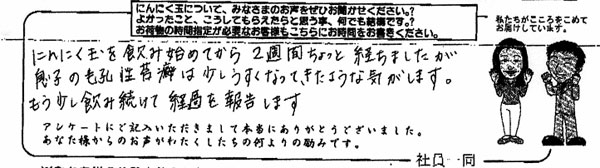 にんにく玉について、みなさまのお声をぜひお聞かせください?
よかったこと、こうしてもらえたらと思う事、何でも結構です?
お荷物の時間指定が必要なお客様もこちらにお時間をお書きください。
私たちがこころをこめて
お届けしています。
にんにく玉を飲み始めてから2週間ちょっと経ちましたが
息子の毛孔性苔癬は少しうすくなってきたような気がします。
もう少し飲み続けて経過を報告します
アンケートにご記入いただきまして本当にありがとうございました。
あなた様からのお声がわたくしたちの何よりの励みです。
社員一同